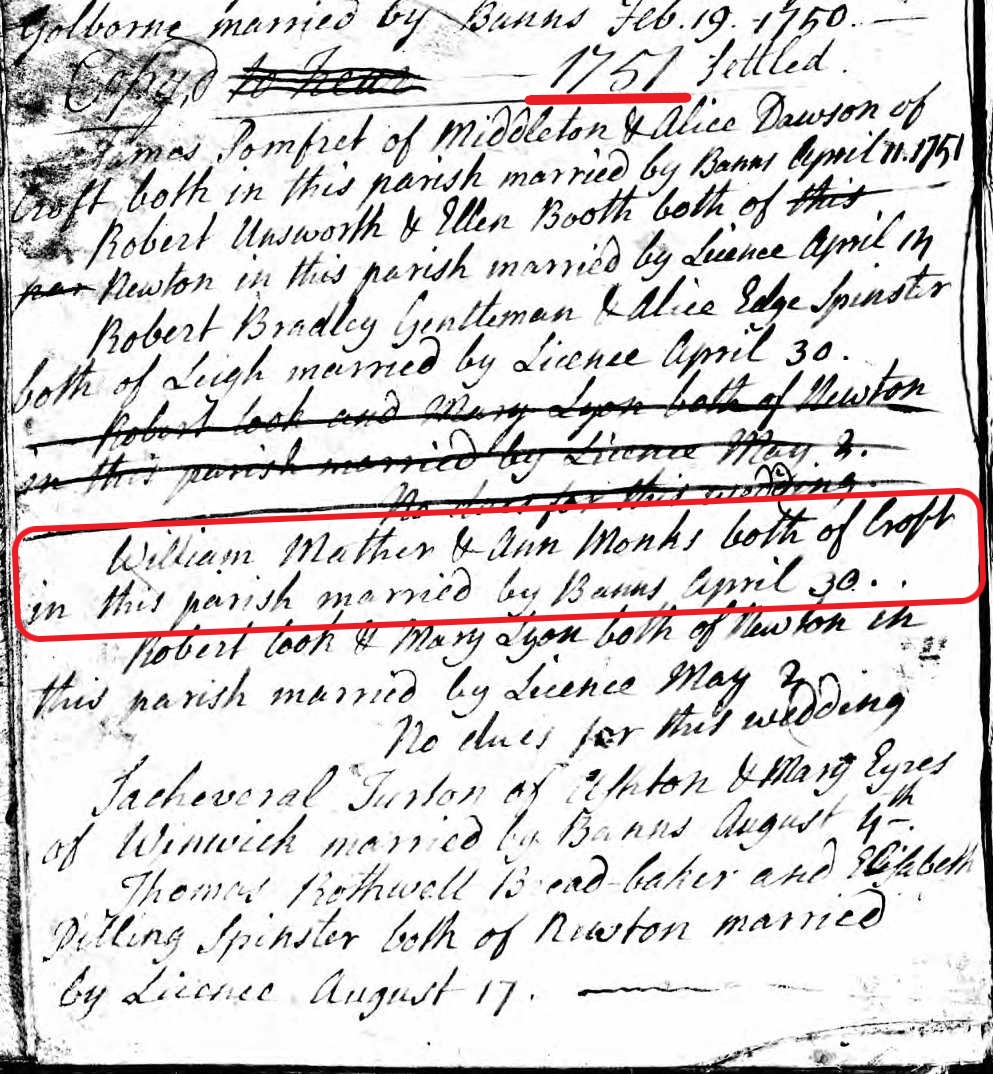 Golborne married by Banns Feb. 19. 1750.
Copy'd to hear 1751 Settled.
James Pomfret of Middleton & Alice Dawson of
Croft both in this parish married by Banns April 11. 1751
Robert Unsworth & Ellen Booth both of this
par Newton in this parish married by Licence April 14
Robert Bradley Gentleman & Alice Edge Spinster
both of Leigh married by Licence April 30.
Robert Cook and Mary Lyon both of Newton
in this parish married by Licence May 2.
No dues for this wedding.
William Mather & Ann Monks both of Croft
in this parish married by Banns April 30.
Robert Cook & Mary Lyon both of Newton in
this parish married by Licence May 2.
No dues for this wedding
Sacheveral Turton of Ashton & Mary Eyres
of Winwick married by Banns August 4th.
Thomas Rothwell Bread-baker and Elizabeth
Pilling Spinster both of Newton married
by Licence August 17.